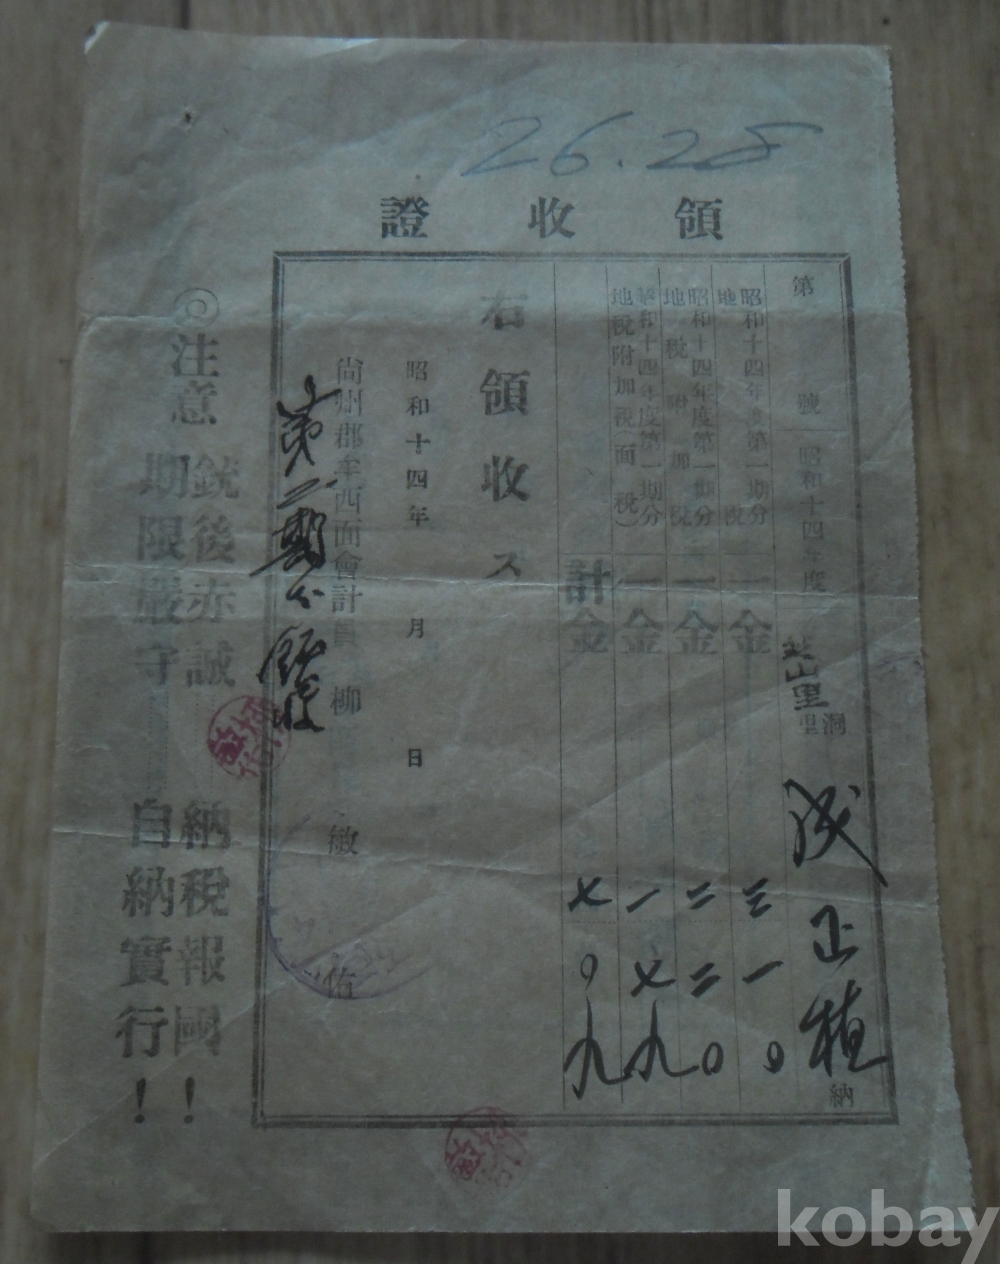 26.28
領收證
第 號 昭和十四年度 山里 洞里 成正植 納
昭和十四年度第一期分
地 稅
一金 三 一 〇
昭和十四年度第一期分
地稅附加稅
一金 二 二 〇
昭和十四年度第一期分
地稅附加稅(面稅)
一金 一 七 九
計金 七 〇 九
右領收ス
昭和十四年 月 日
尙州郡牟西面會計員 柳 敏 佑
第二期分領收
◎注意
銃後赤誠 納稅報國!
期限嚴守 自納實行!
kobay